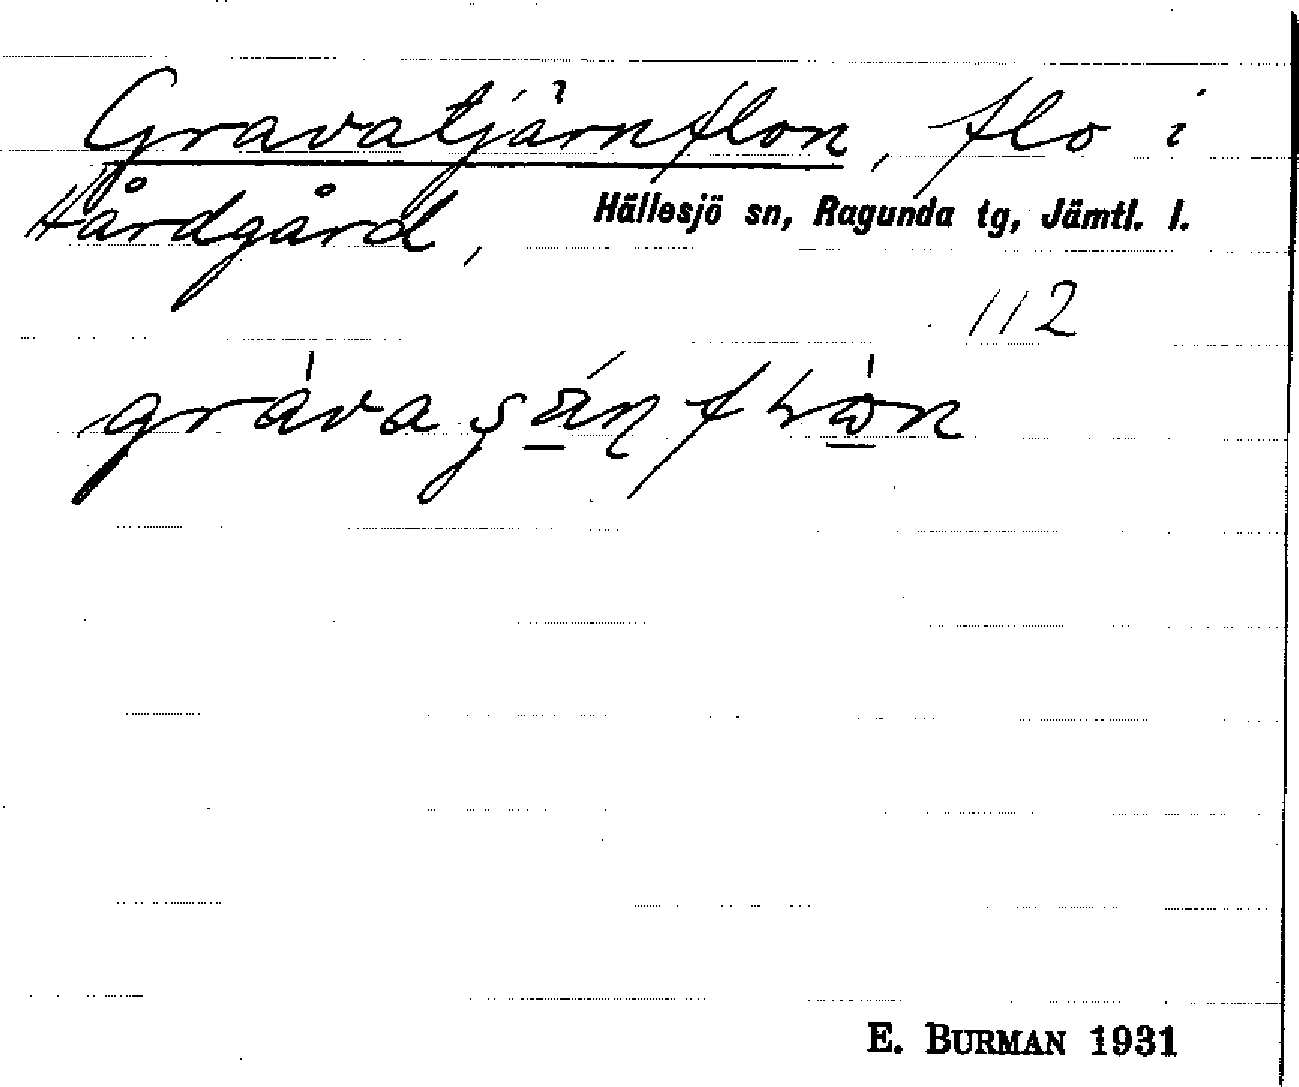 Gravatjärnflon, flo i
Hårdgård, Hällesjö sn, Ragunda tg, Jämtl. l.
112
E. BURMAN 1931